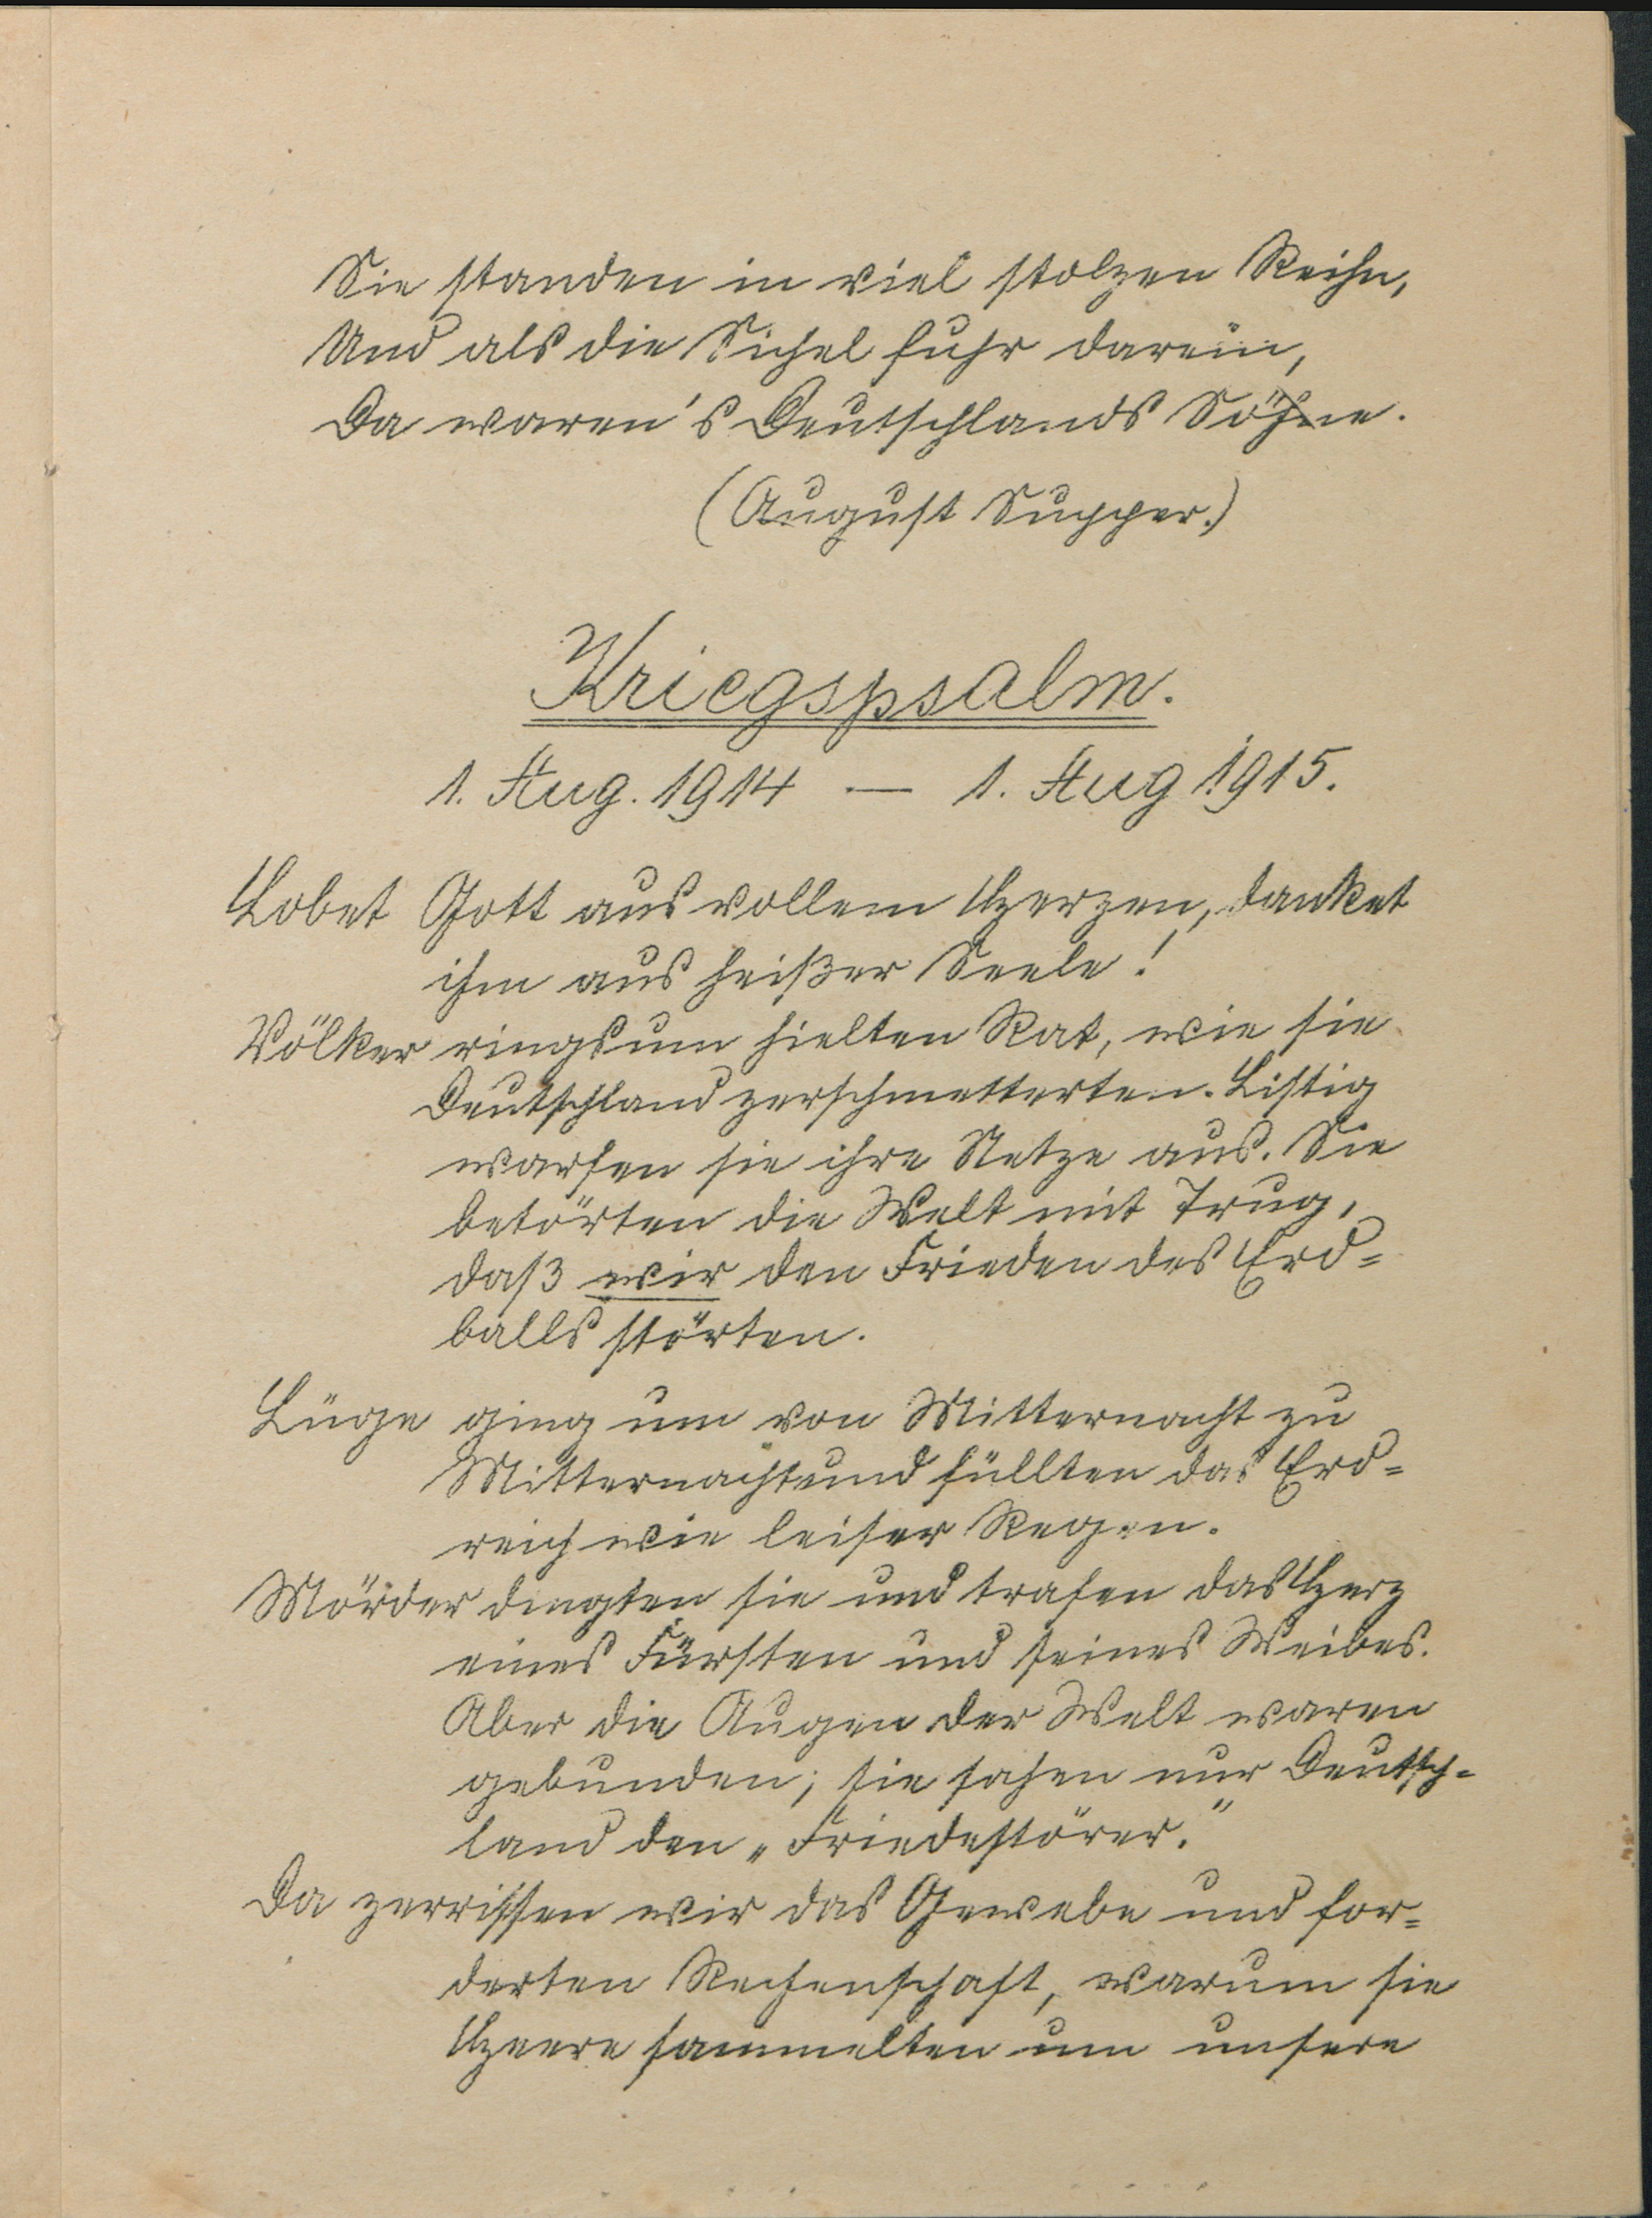 Sie standen in viel stolzen Reihn,
Und als die Sichel fuhr darein,
Da waren's Deutschlands Söhne.
(August Supper.)
Kriegspsalm.
1. Aug. 1914 — 1. Aug 1915.
Lobet Gott aus vollem Herzen, danket
ihm aus heißer Seele!
Völker ringsum hielten Rat, wie sie
Deutschland zerschmetterten. Listig
warfen sie ihre Netze aus. Sie
betörten die Welt mit Trug,
daß wir den Frieden des Erd-
balls störten.
Lüge ging um von Mitternacht zu
Mitternacht und füllten das Erd-
reich wie leiser Regen.
Mörder dingten sie und trafen das Herz
eines Fürsten und seines Weibes.
Aber die Augen der Welt waren
gebunden; sie sahen nur Deutsch-
land den „Friedestörer."
Da zerrissen wir das Gewebe und for-
derten Rechenschaft, warum sie
Heere sammelten um unsere